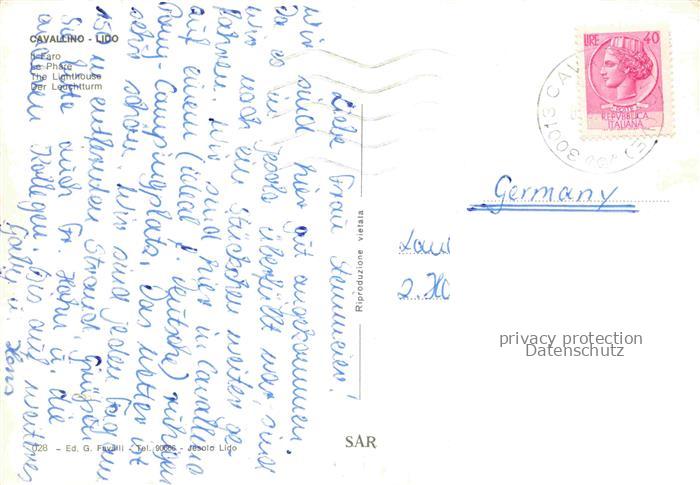 CAVALLINO - LIDO
Il Faro
Le Phare
The Lighthouse
Der Leuchtturm
LIRE 40
REPVBBLICA
ITALIANA
30013 CAV
Germany
2. Ho
privacy protection
Datenschutz
Riproduzione vietata
SAR
028 - Ed. G. Favilli - Tel. 90086 - Jesolo Lido
Liebe Frau
Wir sind hier gut angekommen.
Da es in Jesolo überfüllt war, sind
wir noch ein Stückchen weiter ge-
fahren. Wir sind hier in Cavallino
auf einem (ideal f. Deutsche) ruhigen
Camping-platz. Das Wetter ist
sehr schön. Wir sind jeden Tag am
15 m entfernten Strand. Grüßen
Sie bitte auch Fr. Hahn u. die
anderen Kollegen. Bis auf weiteres
Gabi u.
Hans